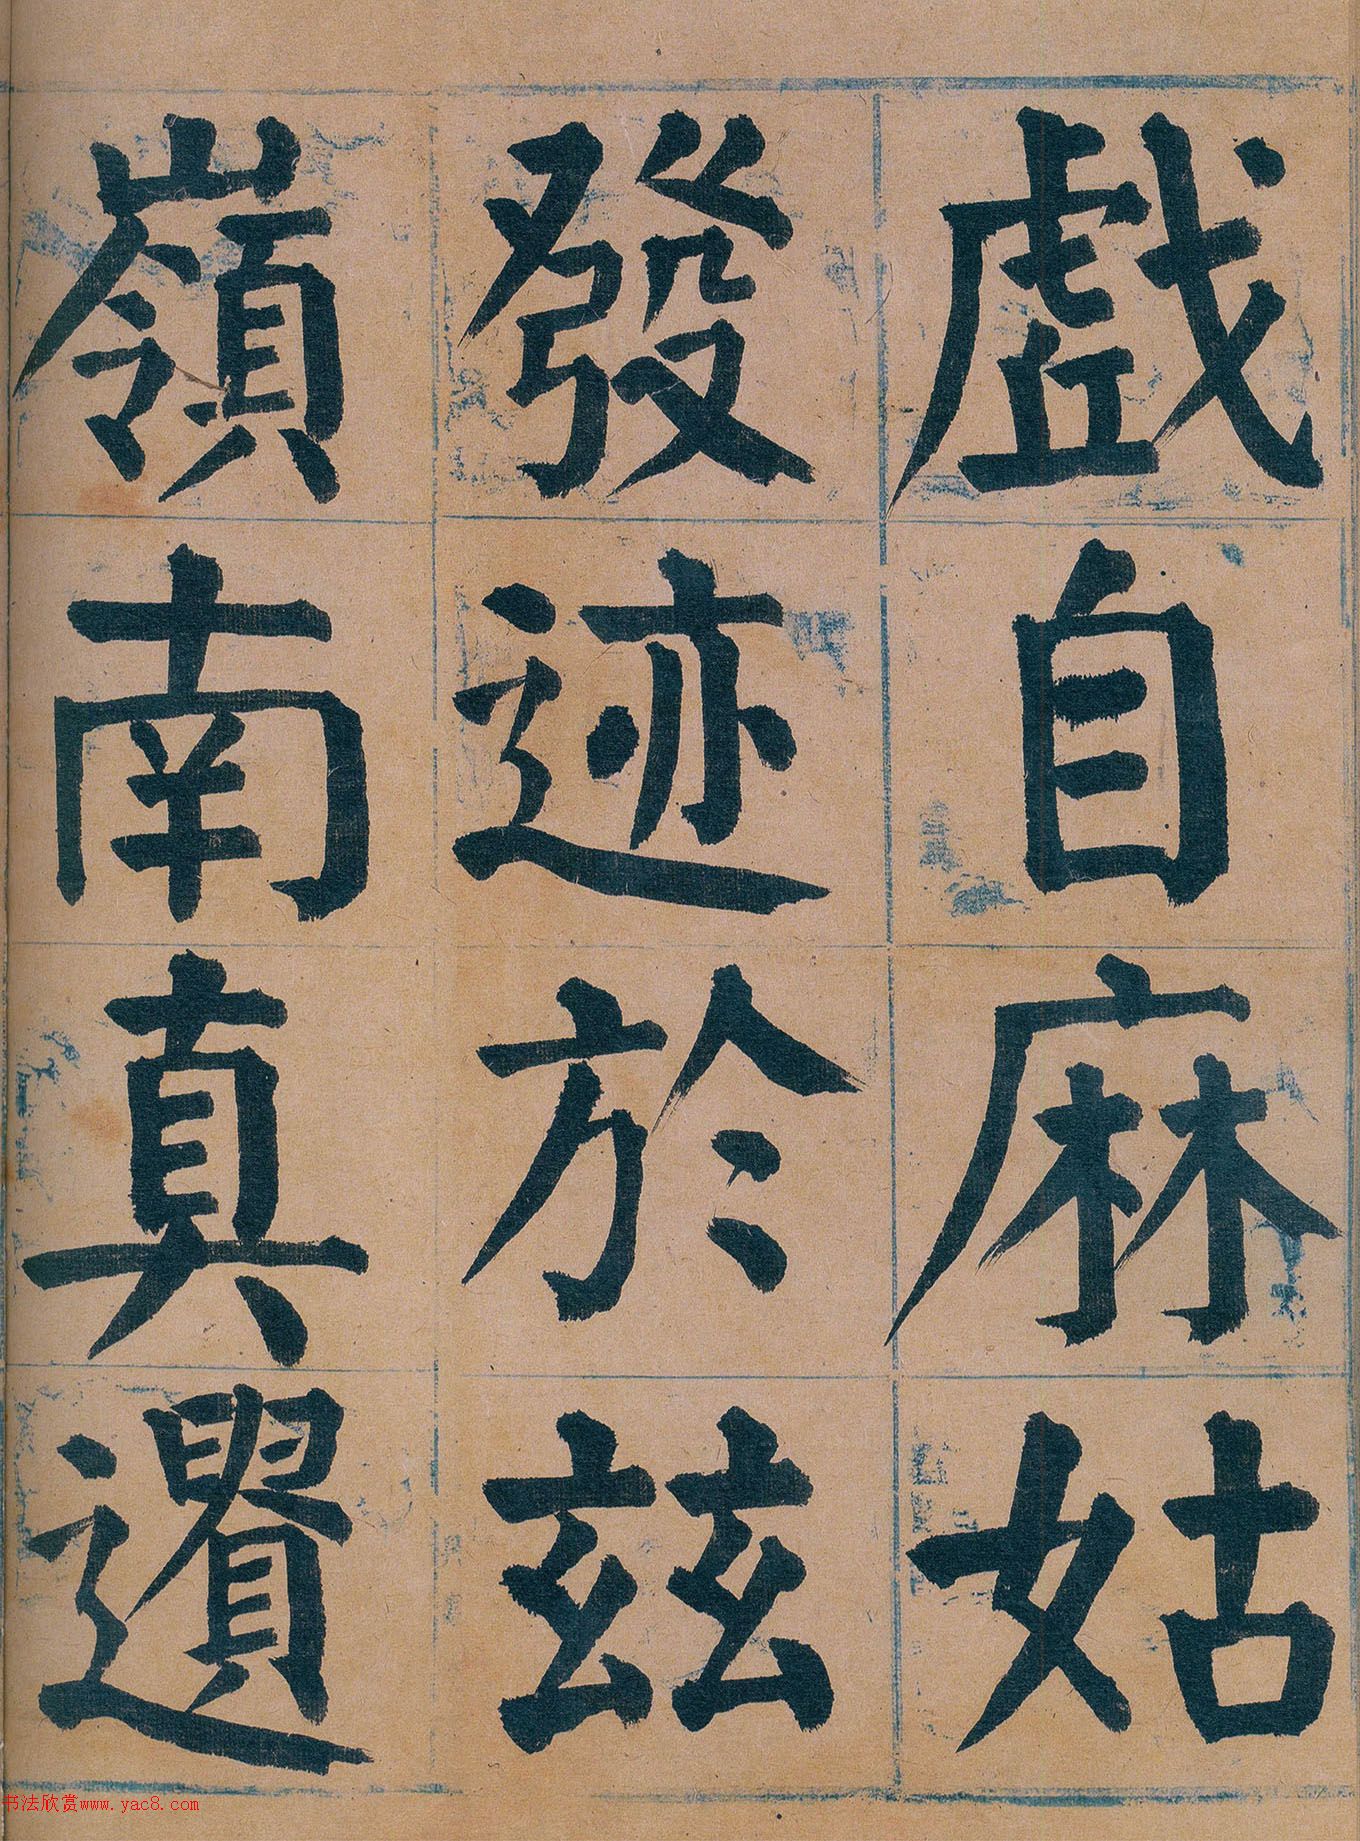 戲自麻姑
發迹於茲
嶺南真遺
书法欣赏www.yac8.com